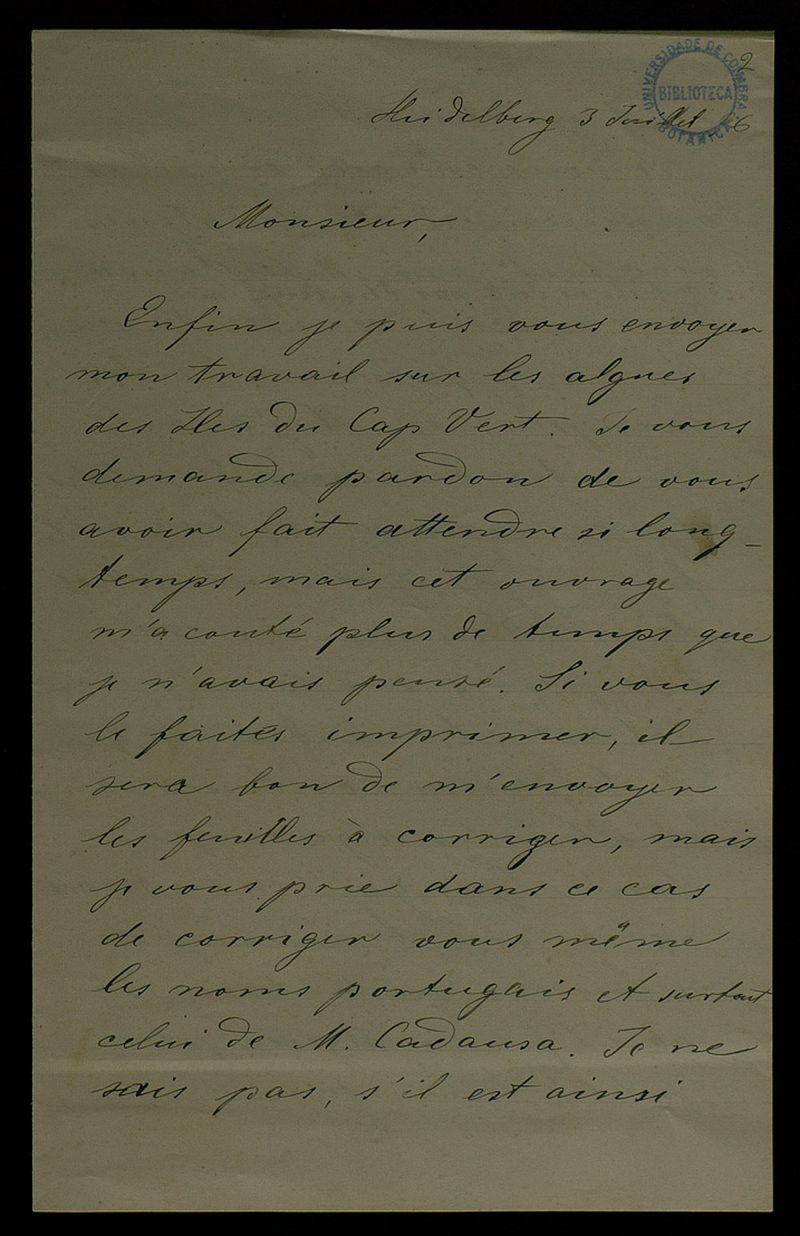 2
UNIVERSIDADE DE COIMBRA
BIBLIOTECA
BOTANICA
Heidelberg 3 Juillet 86
Monsieur,
Enfin je puis vous envoyer
mon travail sur les algues
des Iles du Cap Vert. Je vous
demande pardon de vous
avoir fait attendre si long-
temps, mais cet ouvrage
m'a couté plus de temps que
je n'avais pensé. Si vous
le faites imprimer, il
sera bon de m'envoyer
les feuilles à corriger, mais
je vous prie dans ce cas
de corriger vous même
les noms portugais et surtout
celui de M. Cadausa. Je ne
sais pas, s'il est ainsi